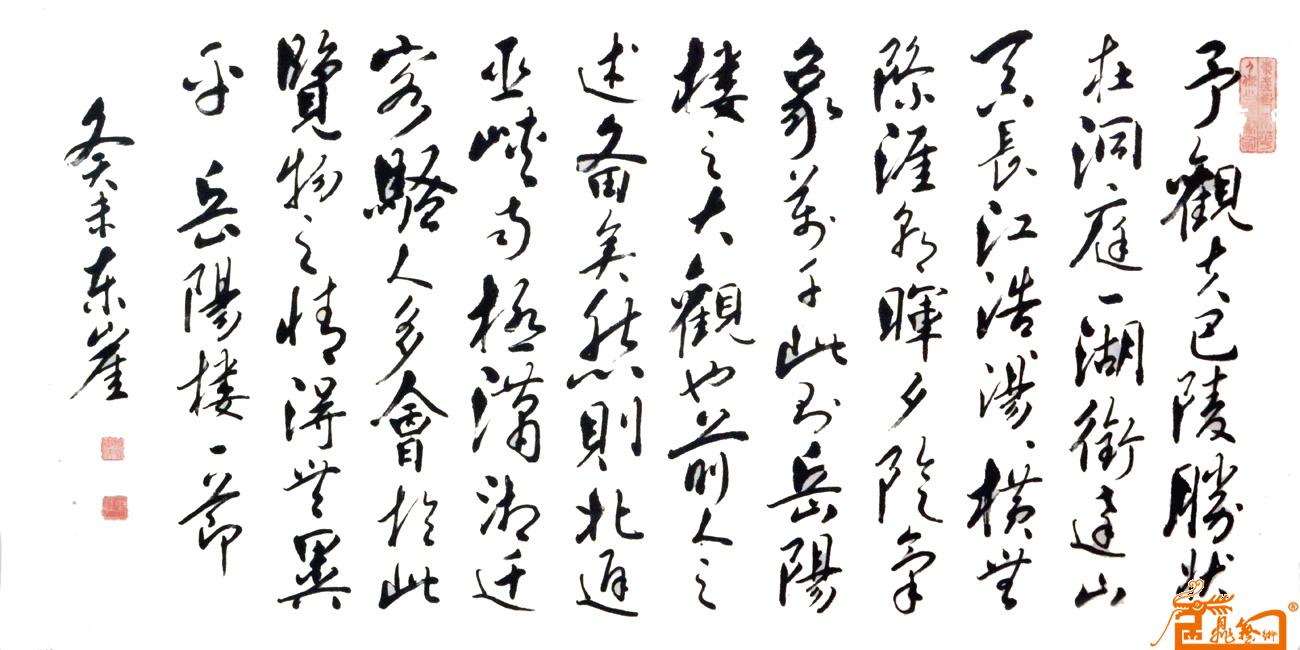 予觀夫巴陵勝狀
在洞庭一湖銜遠山
吞長江浩湯、橫無
際涯朝暉夕陰氣
象萬千此則岳陽
楼之大觀也前人之
述备矣然則北通
巫峽南極瀟湘遷
客騷人多會於此
覽物之情得無異
乎 岳陽楼一節
癸未東崖